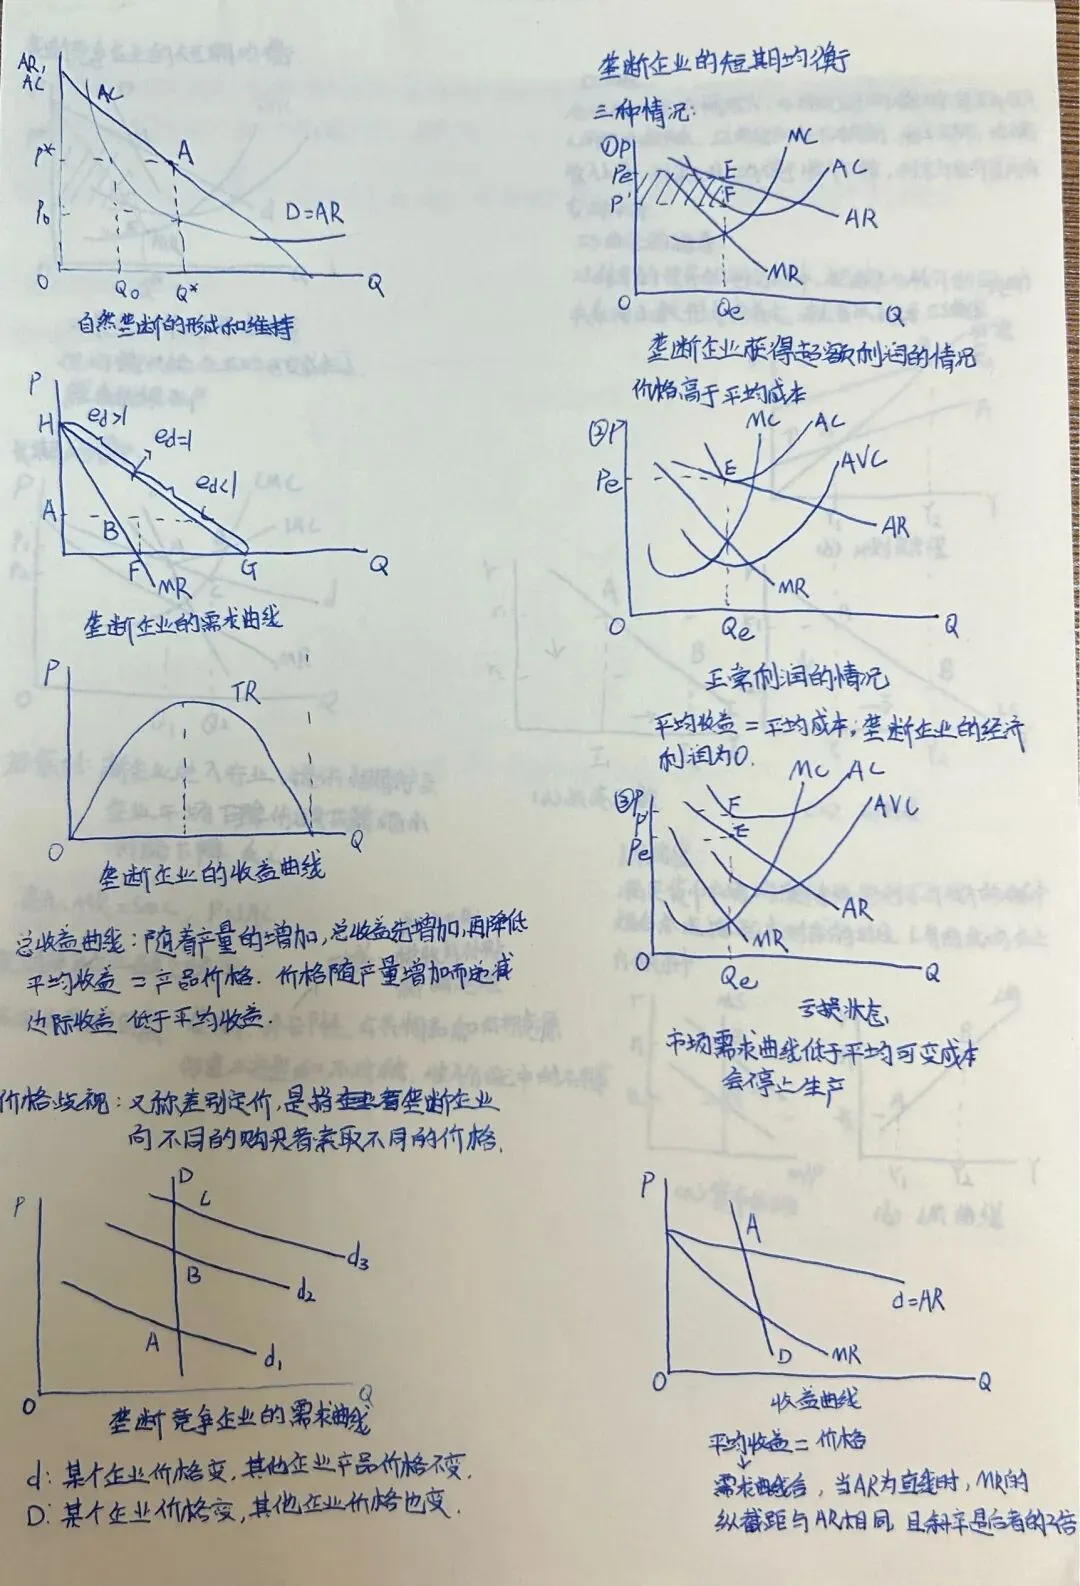 AR,
AC
AC
P*
A
P₀
D=AR
O
Q₀
Q*
Q
自然垄断的形成和维持
P
H
ed>1
ed=1
ed<1
A
B
C
F
G
Q
MR
垄断企业的需求曲线
P
TR
O
Q
垄断企业的收益曲线
总收益曲线：随着产量的增加，总收益先增加，再降低
平均收益 = 产品价格. 价格随产量增加而递减
边际收益 低于平均收益.
价格歧视：又称差别定价，是指垄断企业
向不同的购买者索取不同的价格.
P
D
C
d₃
B
d₂
A
d₁
O
Q
垄断竞争企业的需求曲线
d: 某个企业价格变，其他企业产品价格不变.
D: 某个企业价格变，其他企业价格也变.
垄断企业的短期均衡
三种情况:
①P
MC
Pe
E
AC
P'
F
AR
MR
O
Qe
Q
垄断企业获得超额利润的情况
价格高于平均成本
②P
MC
AC
Pe
E
AVC
AR
MR
O
Qe
Q
正常利润的情况
平均收益 = 平均成本; 垄断企业的经济
利润为0.
③P
MC
AC
P'
F
AVC
Pe
E
AR
MR
O
Qe
Q
亏损状态
市场需求曲线低于平均可变成本
会停止生产
P
A
d=AR
D
MR
O
Q
收益曲线
平均收益 = 价格
需求曲线合，当AR为直线时，MR的
纵截距与AR相同 且斜率是后者的2倍